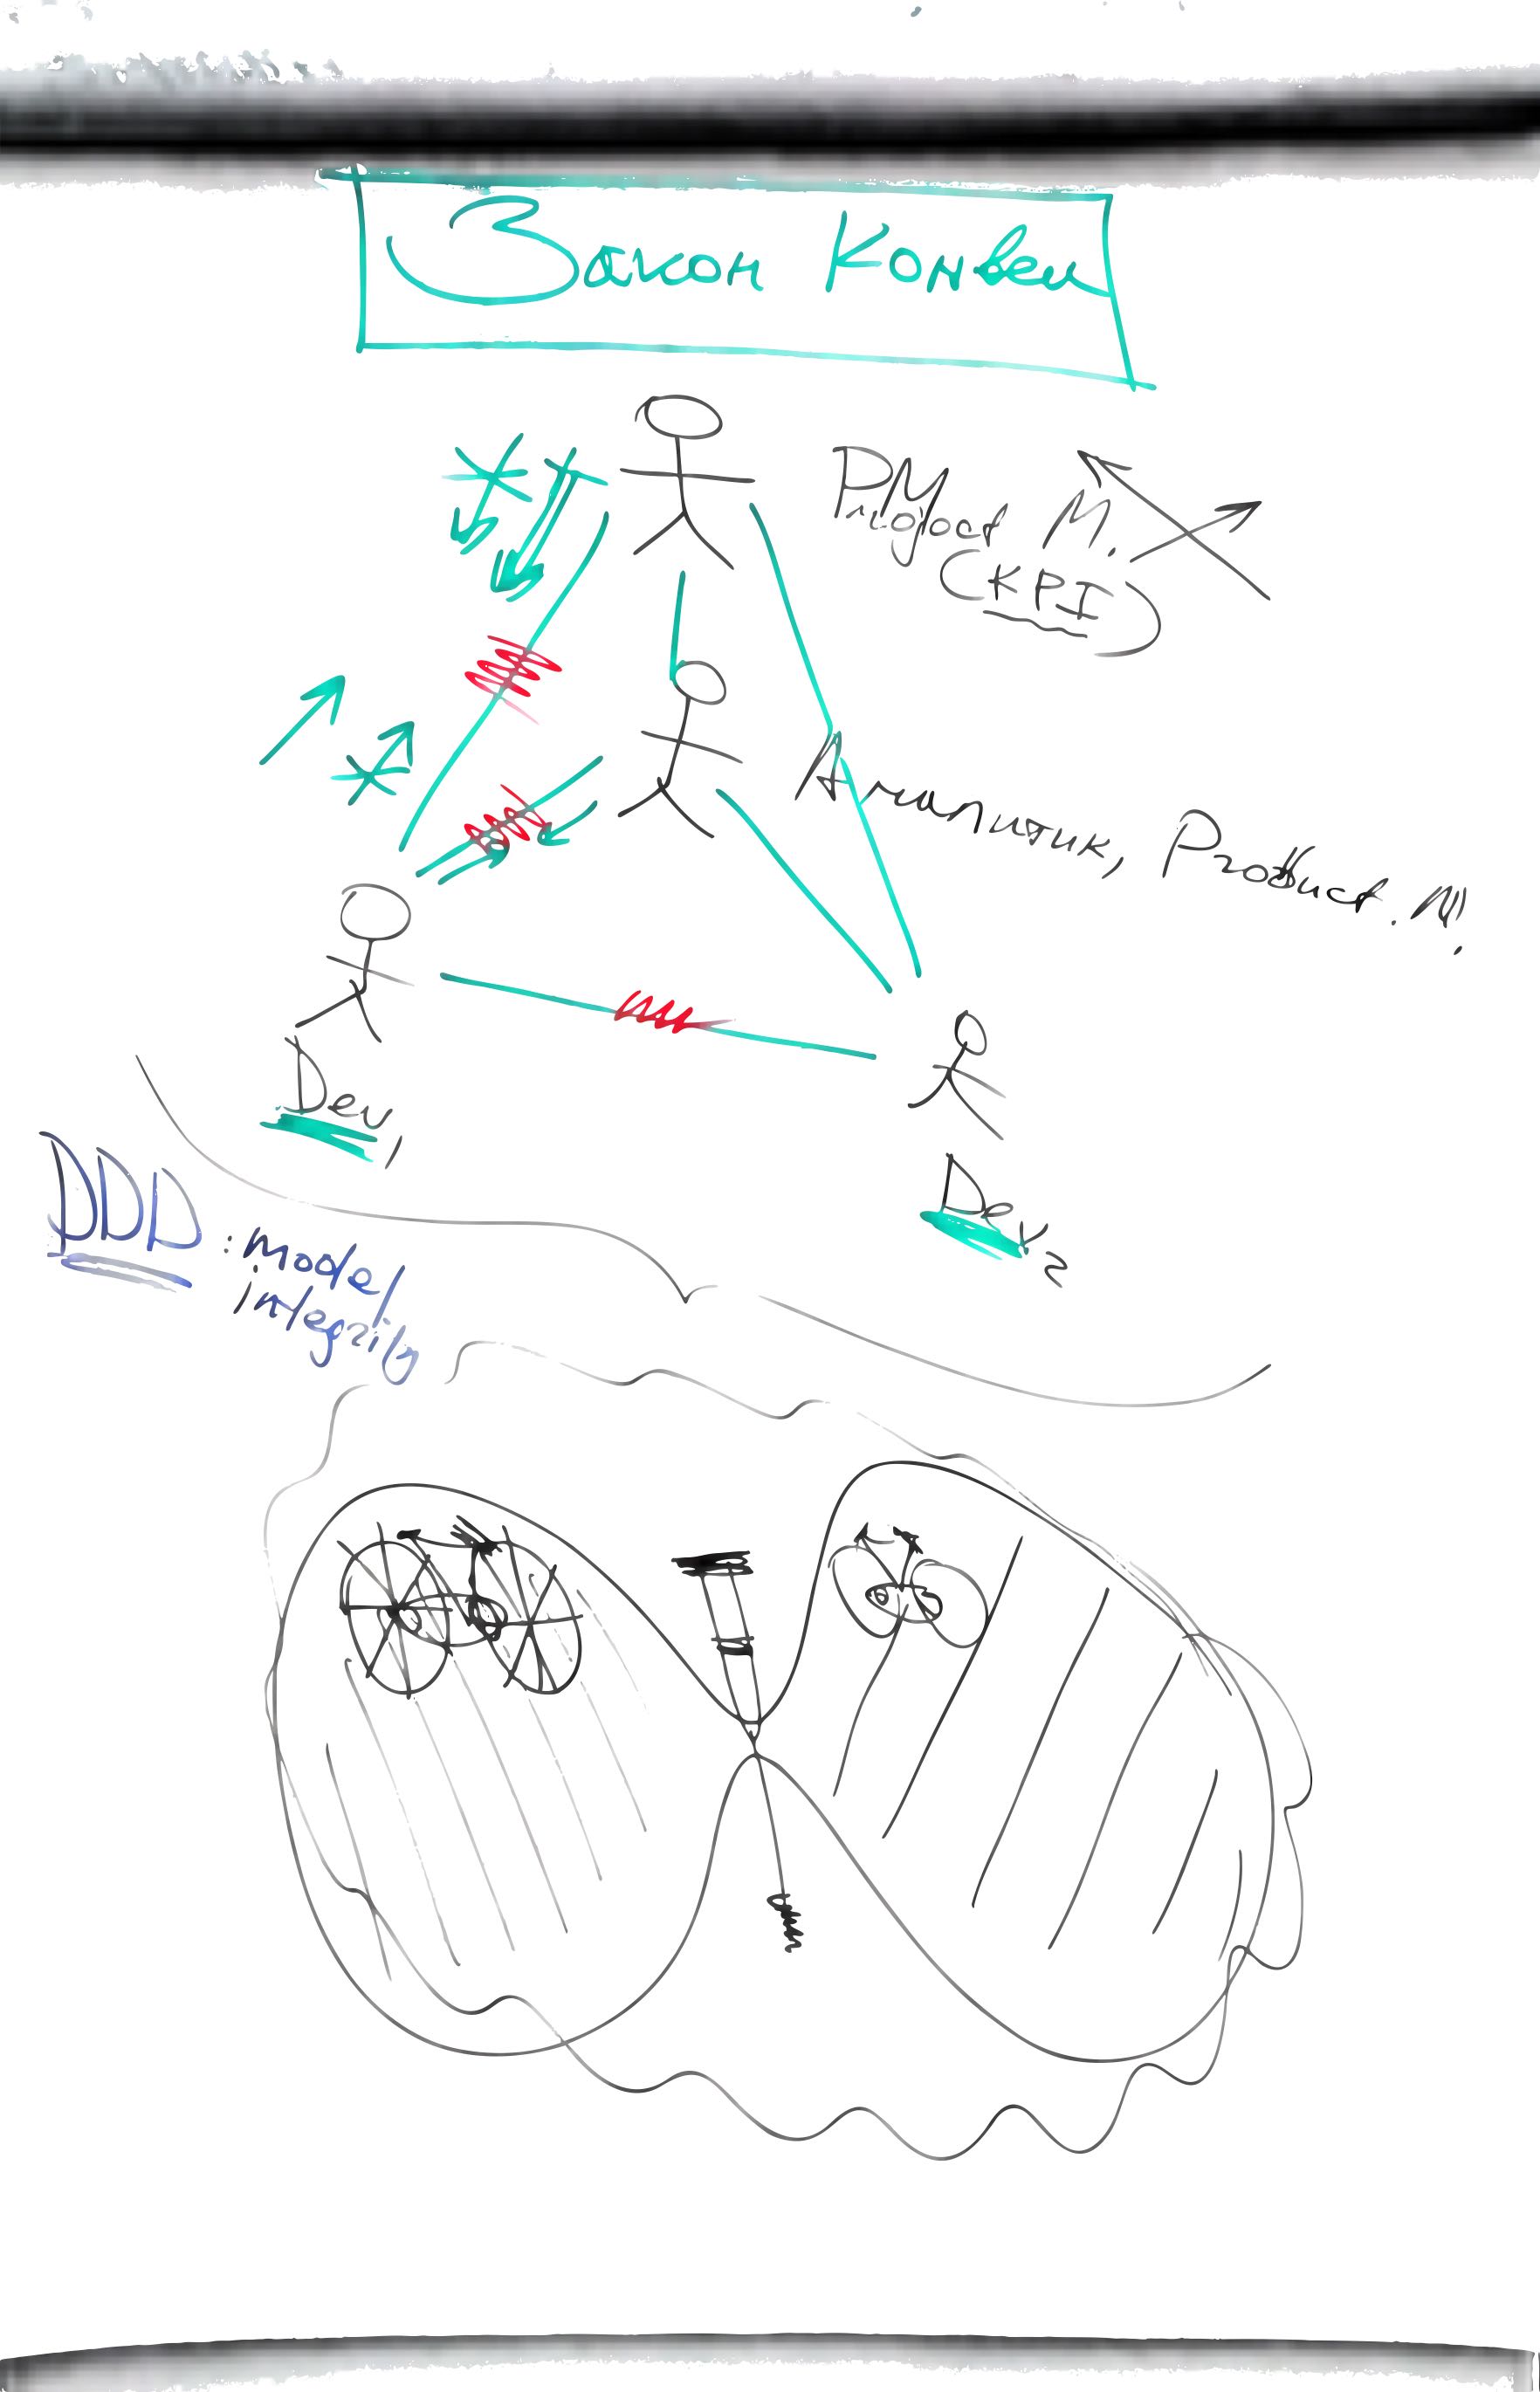 Закон Конвея
PM
Project M.
(KPI)
Аналитик, Product. M.
Dev1
Dev2
DDD : model
integrity